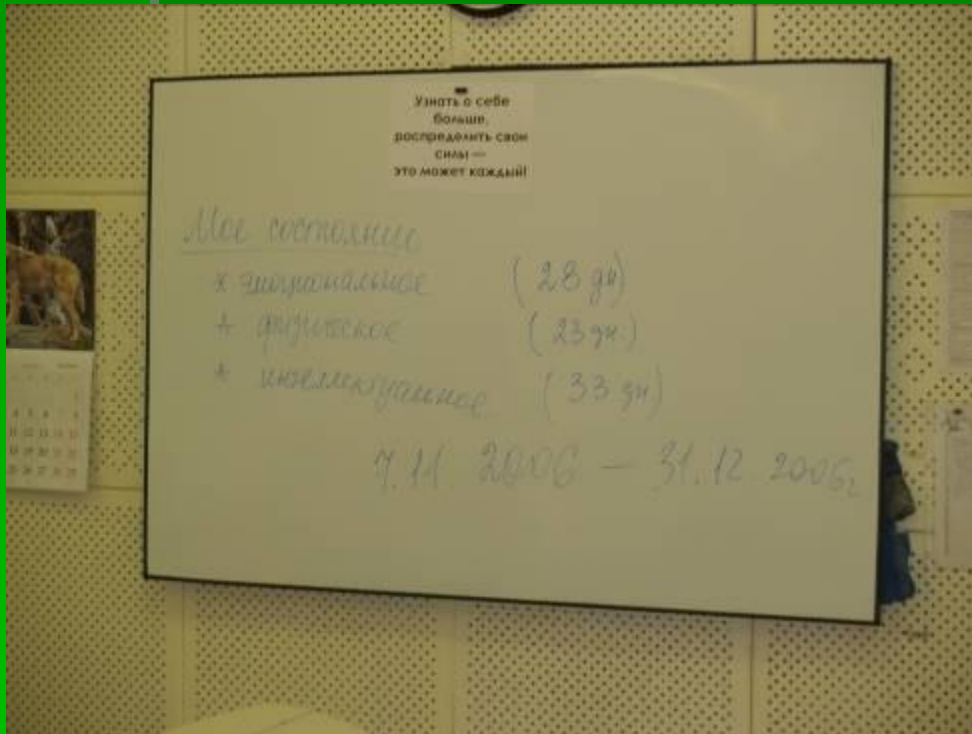 Узнать о себе
больше,
распределить свои
силы —
это может каждый!
Мое состояние
* эмоциональное (28 дн)
* физическое (23 дн.)
* интеллектуальное (33 дн)
7.11. 2006 — 31.12. 2006г